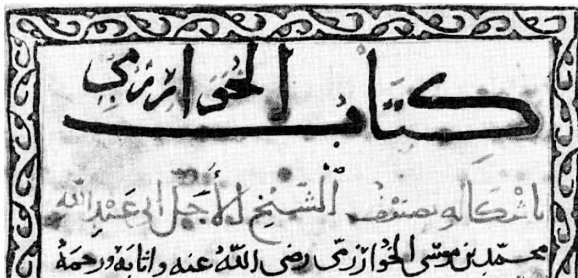 كتاب الخوارزمي
باشكاله وصنف الشيخ الأجل ابى عبد الله
محمد بن موسى الخوارزمى رضى الله عنه واثابه ورحمه